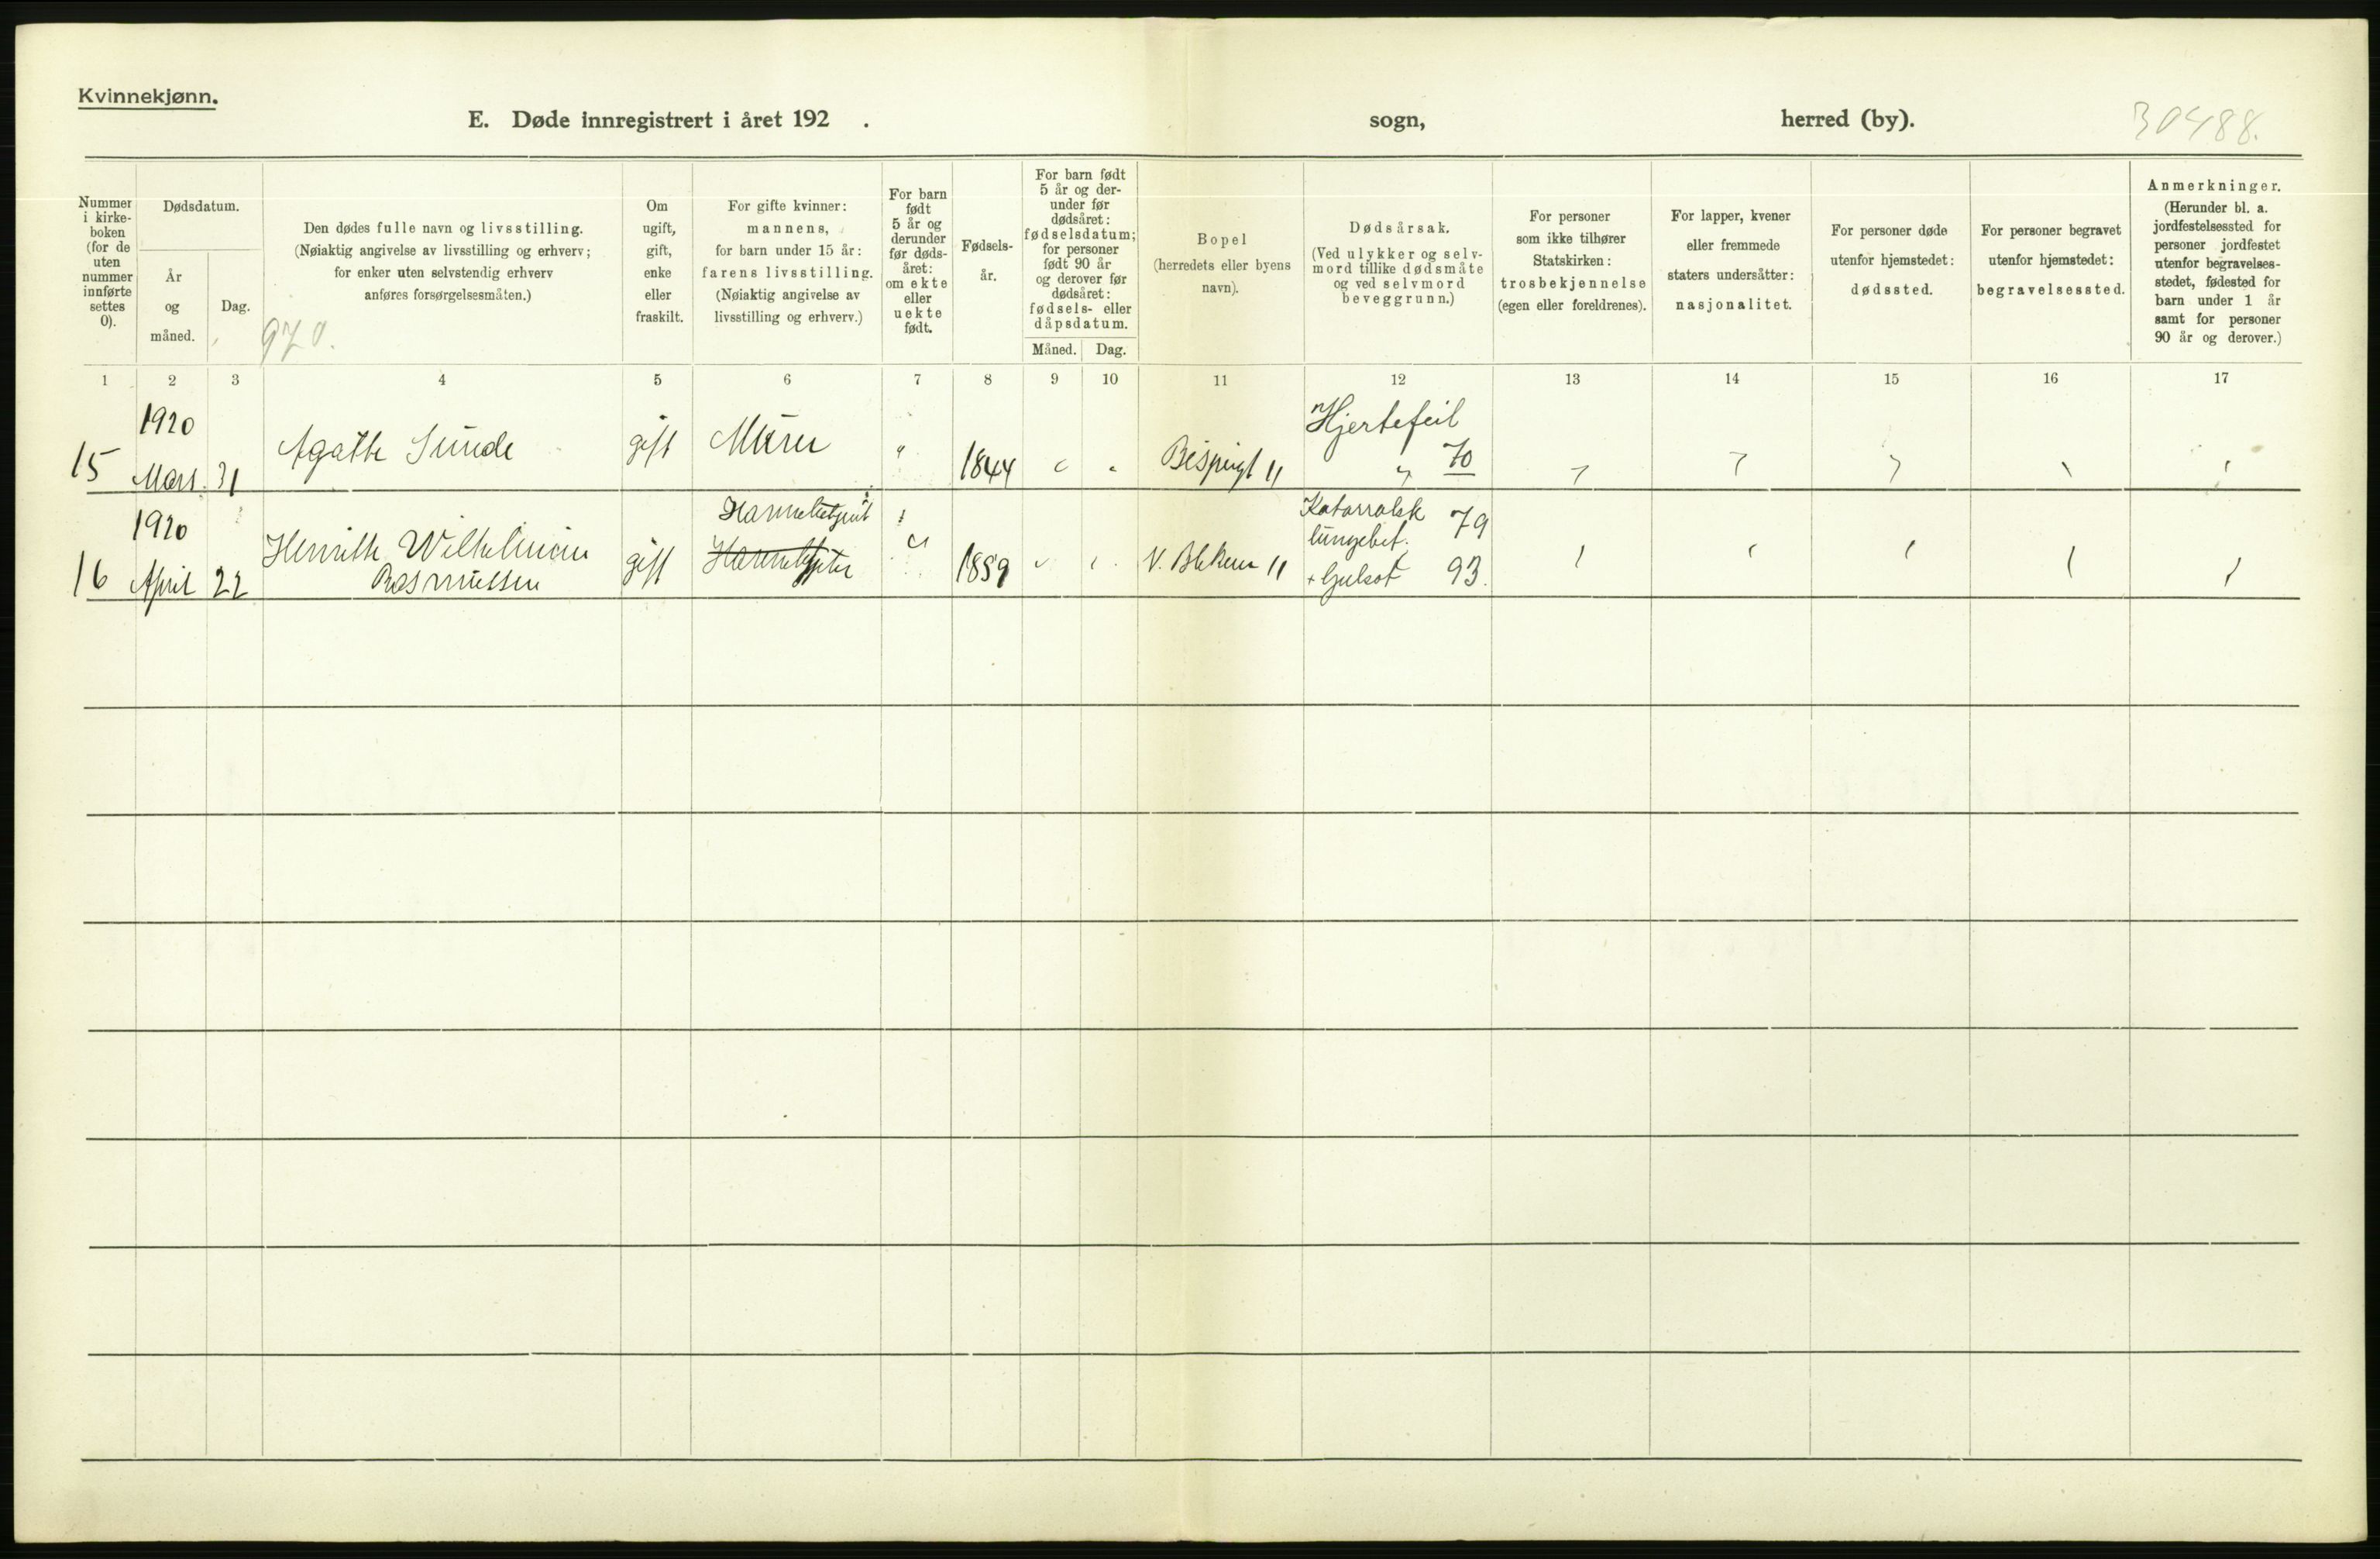 Kvinnekjønn.
E. Døde innregistrert i året 192 .
sogn,
herred (by).
30488.
Nummer
i kirke-
boken
(for de
uten
nummer
innførte
settes
0).
Dødsdatum.
År
og
måned.
Dag.
Den dødes fulle navn og livsstilling.
(Nøiaktig angivelse av livsstilling og erhverv;
for enker uten selvstendig erhverv
anføres forsørgelsesmåten.)
970.
Om
ugift,
gift,
enke
eller
fraskilt.
For gifte kvinner:
mannens,
for barn under 15 år:
farens livsstilling.
(Nøiaktig angivelse av
livsstilling og erhverv.)
For barn
født
5 år og
derunder
før døds-
året:
om ekte
eller
uekte
født.
Fødsels-
år.
For barn født
5 år og der-
under før
dødsåret:
fødselsdatum;
for personer
født 90 år
og derover før
dødsåret:
fødsels- eller
dåpsdatum.
Måned.
Dag.
Bopel
(herredets eller byens
navn).
Dødsårsak.
(Ved ulykker og selv-
mord tillike dødsmåte
og ved selvmord
beveggrunn.)
For personer
som ikke tilhører
Statskirken:
trosbekjennelse
(egen eller foreldrenes).
For lapper, kvener
eller fremmede
staters undersåtter:
nasjonalitet.
For personer døde
utenfor hjemstedet:
dødssted.
For personer begravet
utenfor hjemstedet:
begravelsessted.
Anmerkninger.
(Herunder bl. a.
jordfestelsessted for
personer jordfestet
utenfor begravelses-
stedet, fødested for
barn under 1 år
samt for personer
90 år og derover.)
1 2 3 4 5 6 7 8 9 10 11 12 13 14 15 16 17
1920
Hjertefeil
15 Mars. 31 Agathe Sunde gift Murer " 1844 " " 11 " 70
1920
Katarralsk 79
lungebet.
Henriette Wilhelmine
16 April 22 Rasmussen gift " 1859 V. 11 + Gulsot 93.